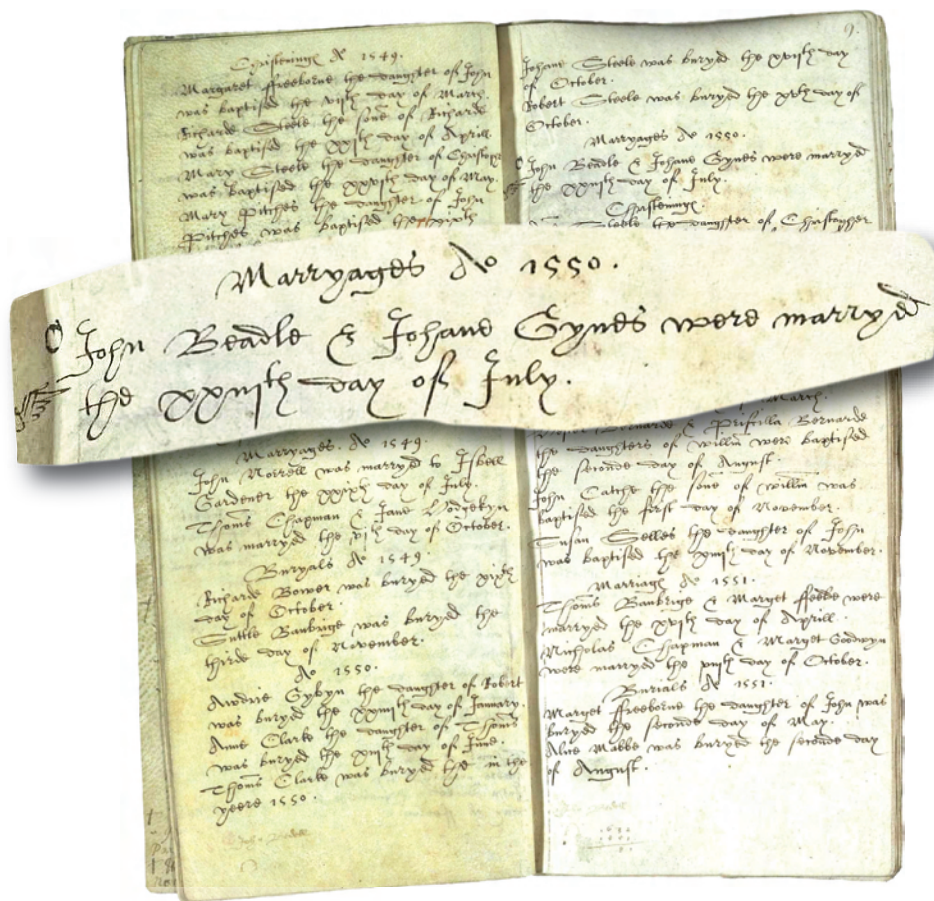 Christenings Ao 1549.
Margaret ffreeborne the daughter of John
was baptised the day of March.
Richarde Steele the sone of Richarde
was baptised the day of Aprill
Mary Steele the daughter of Christopr
was baptised the day of May.
Mary Pitches the daughter of John
Pitches was baptised the
Marryages Ao 1550.
John Beadle & Johane Gynes were marryed
the day of July.
Marryages. Ao 1549.
John Norrell was marryed to Isbell
Gardener the xxixth day of July.
Thoms Chapman & Jane
was marryed the vith day of October.
Buryals Ao 1549
Richarde Bower was buryed the xixth
day of October.
Suttle Banbrige was buryed the
thirde day of November.
Ao 1550.
Awdrie Gybyn the daughter of Robert
was buryed the day of January.
Anne Clarke the daughter of Thoms
was buryed the day of June.
Thoms Clarke was buryed the in the
yeere 1550.
9.
Johane Steele was buryed the day
of October.
Robert Steele was buryed the xvth day of
October.
Marryages Ao 1550.
John Beadle & Johane Gynes were marryed
the day of July.
Christenings.
Steele the daughter of Christopher
March.
Bernarde & Prisilla Bernarde
the daughters of willm were baptised
the seconde day of August.
John Catche the sone of willm was
baptised the first day of November.
Susan Selles the daughter of John
was baptised the day of November.
Marriages Ao 1551.
Thoms Banbrige & Marget ffebbe were
marryed the day of Aprill.
Nicholas Chapman & Marget Godwyn
were marryed the day of October.
Burials Ao 1551.
Marget ffreeborne the daughter of John was
buryed the seconde day of May.
Alice Mabbe was buryed the seconde day
of August.